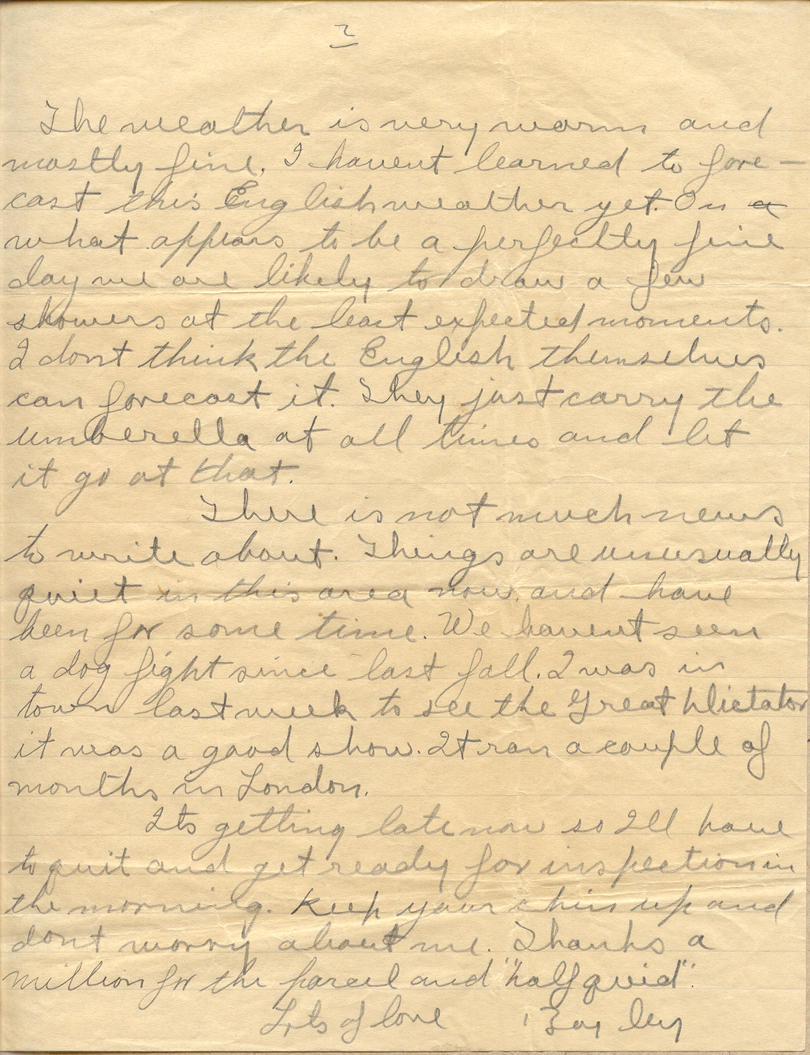 2
The weather is very warm and
mostly fine. I havent learned to fore-
cast this English weather yet. On a
what appears to be a perfectly fine
day we are likely to draw a few
showers at the least expected moments.
I dont think the English themselves
can forecast it. They just carry the
umberella at all times and let
it go at that.
There is not much news
to write about. Things are unusually
quiet in this area now and have
been for some time. We havent seen
a dog fight since last fall. I was in
town last week to see the Great Dictator
it was a good show. It ran a couple of
months in London.
Its getting late now so Ill have
to quit and get ready for inspection in
the morning. Keep your chins up and
dont worry about me. Thanks a
million for the parcel and "half quid".
Lots of love